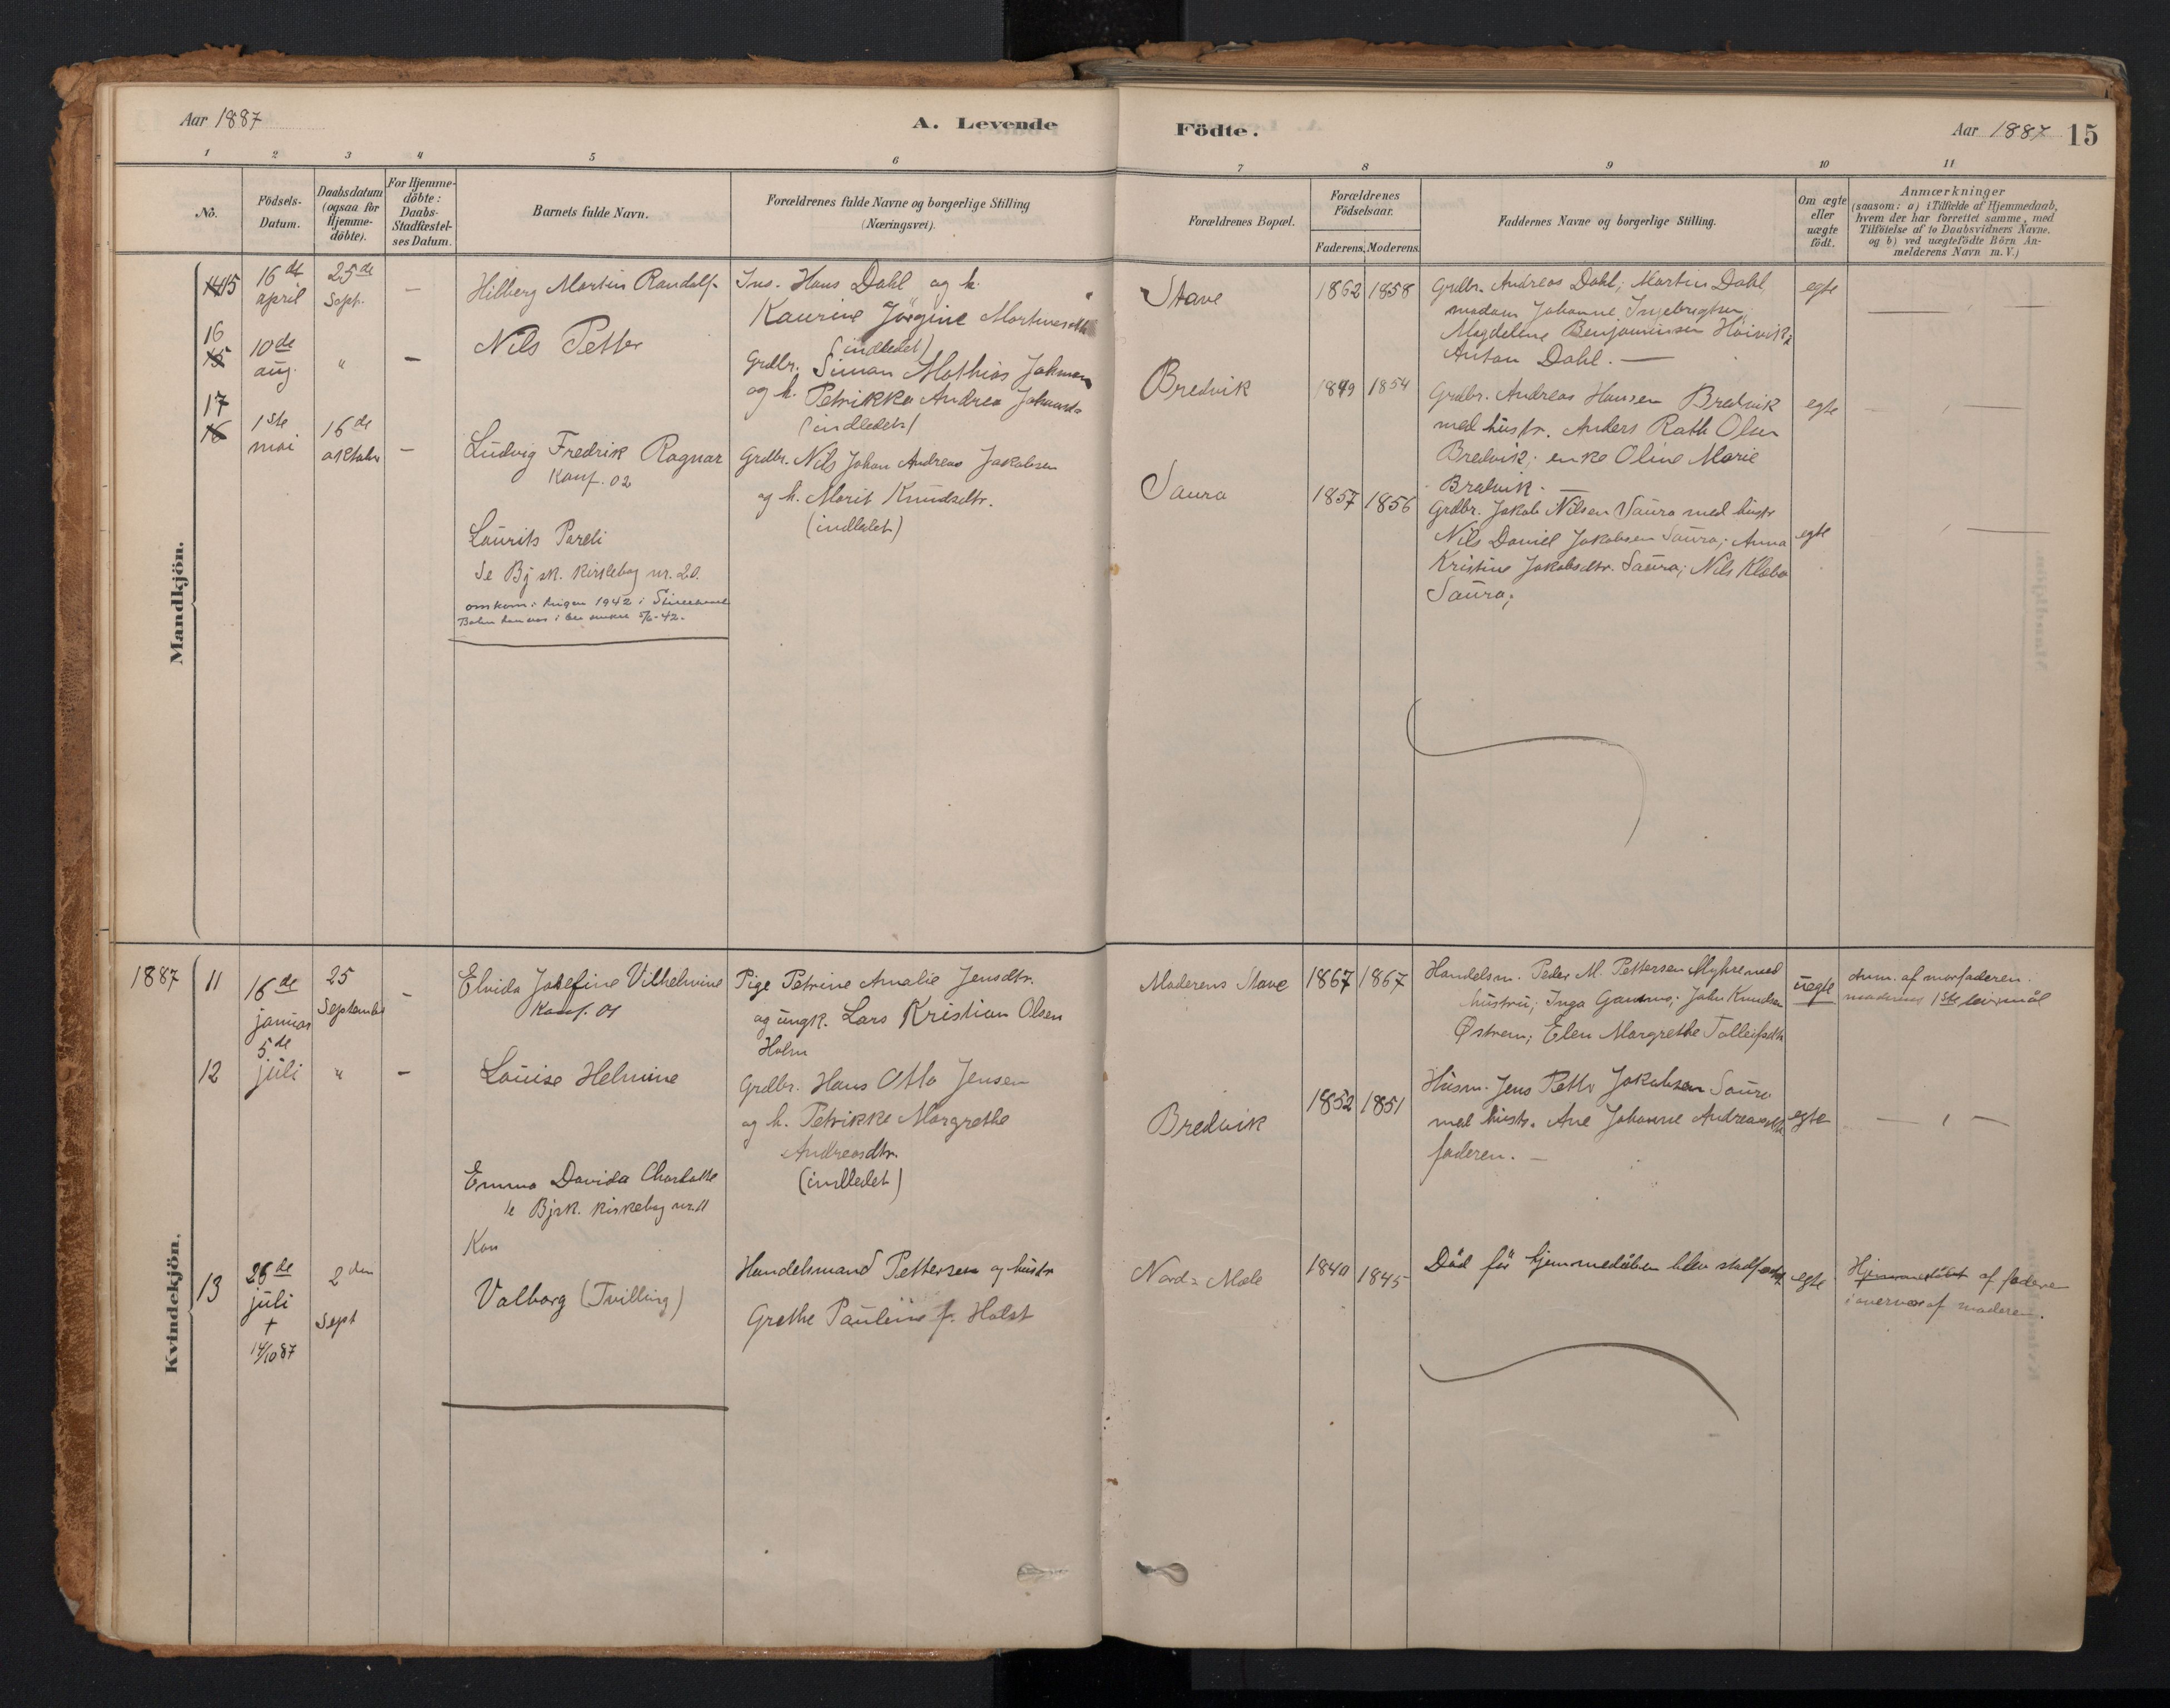 Aar 1887
A. Levende
Födte.
Aar 1887
15
1 2 3 4 5 6 7 8 9 10 11
No.
Födsels-
Datum.
Daabsdatum
(ogsaa for
Hjemme-
döbte).
For Hjemme-
döbte:
Daabs-
Stadfæstel-
ses Datum.
Barnets fulde Navn.
Forældrenes fulde Navne og borgerlige Stilling
(Næringsvei).
Forældrenes Bopæl.
Forældrenes
Födselsaar.
Faderens.
Moderens.
Faddernes Navne og borgerlige Stilling.
Om ægte
eller
uægte
födt.
Anmærkninger
(saasom: a) i Tilfælde af Hjemmedaab,
hvem der har forrettet samme, med
Tilföielse af to Daabsvidners Navne.
og b) ved uægtefödte Börn An-
melderens Navn m. V.)
Mandkjön.
14 15
16de
april
25de
Sept.
—
Hilberg Martin Randolf
Ins. Hans Dahl og h.
Kaurine Jörgine
(indledet)
Stave
1862 1858
Grdbr. Andreas Dahl; Martin Dahl,
madam Johanne Ingebrigtsen,
Magdelene Benjaminsen
Anton Dahl. —
egte
16
15
10de
aug.
"
—
Nils Petter
Grdbr. Simon Mathias
og h. Petrikke Andrea
(indledet)
Bredvik
1849 1854
Grdbr. Andreas Hansen Bredvik
med hustr. Anders Rath Olsen
Bredvik; enke Oline Marie
Bredvik. —
egte
17
16
1ste
mai
16de
oktober
—
Ludvig Fredrik Ragnar
Konf. 02
Grdbr. Nils Johan Andreas Jakobsen
og h. Marit Knudsdtr.
(indledet)
Saura
1857 1856
Grdbr. Jakob Nilsen Saura med hustr
Nils Daniel Jakobsen Saura; Anna
Kristine Jakobsdtr. Saura; Nils Klæbo
Saura;
egte
Laurits Pareli
Se Bj sk. kirkebog nr. 20.
omkom i krigen 1942 i
Kvindekjön.
1887
11
16de
januar
25
September
—
Elvida Josefine Vilhelmine
Konf. 01
Pige Petrine Amalie Jensdtr.
og ungk. Lars Kristian Olsen
Holm
Moderens Stave
1867 1867
Handelsm. Peder M. Pettersen Myhre med
hustru; Inga; John Knudsen
Østrem; Elen Margrethe
uegte
Anm. af morfaderen.
moderens 1ste leiermål
12
5de
juli
"
—
Louise Helmine
Grdbr. Hans Otto Jensen
og h. Petrikke Margrethe
Andreasdtr.
(indledet)
Bredvik
1852 1851
Husm. Jens Petter Jakobsen Saura
med hustr. Ane Johanne
faderen. —
egte
Emma Davida Charlotte
se Bjsk. kirkebog nr. 11
Kon
13
26de
juli
+
14/10 87
2den
Sept
Valborg (Tvilling)
Handelsmand Pettersen og hustr
Grethe Pauline f. Holst
Nord-Mele
1840 1845
Död för hjemmedåben blev stadfestet
egte
Hjemmedöbt af faderen
i overvær af moderen.